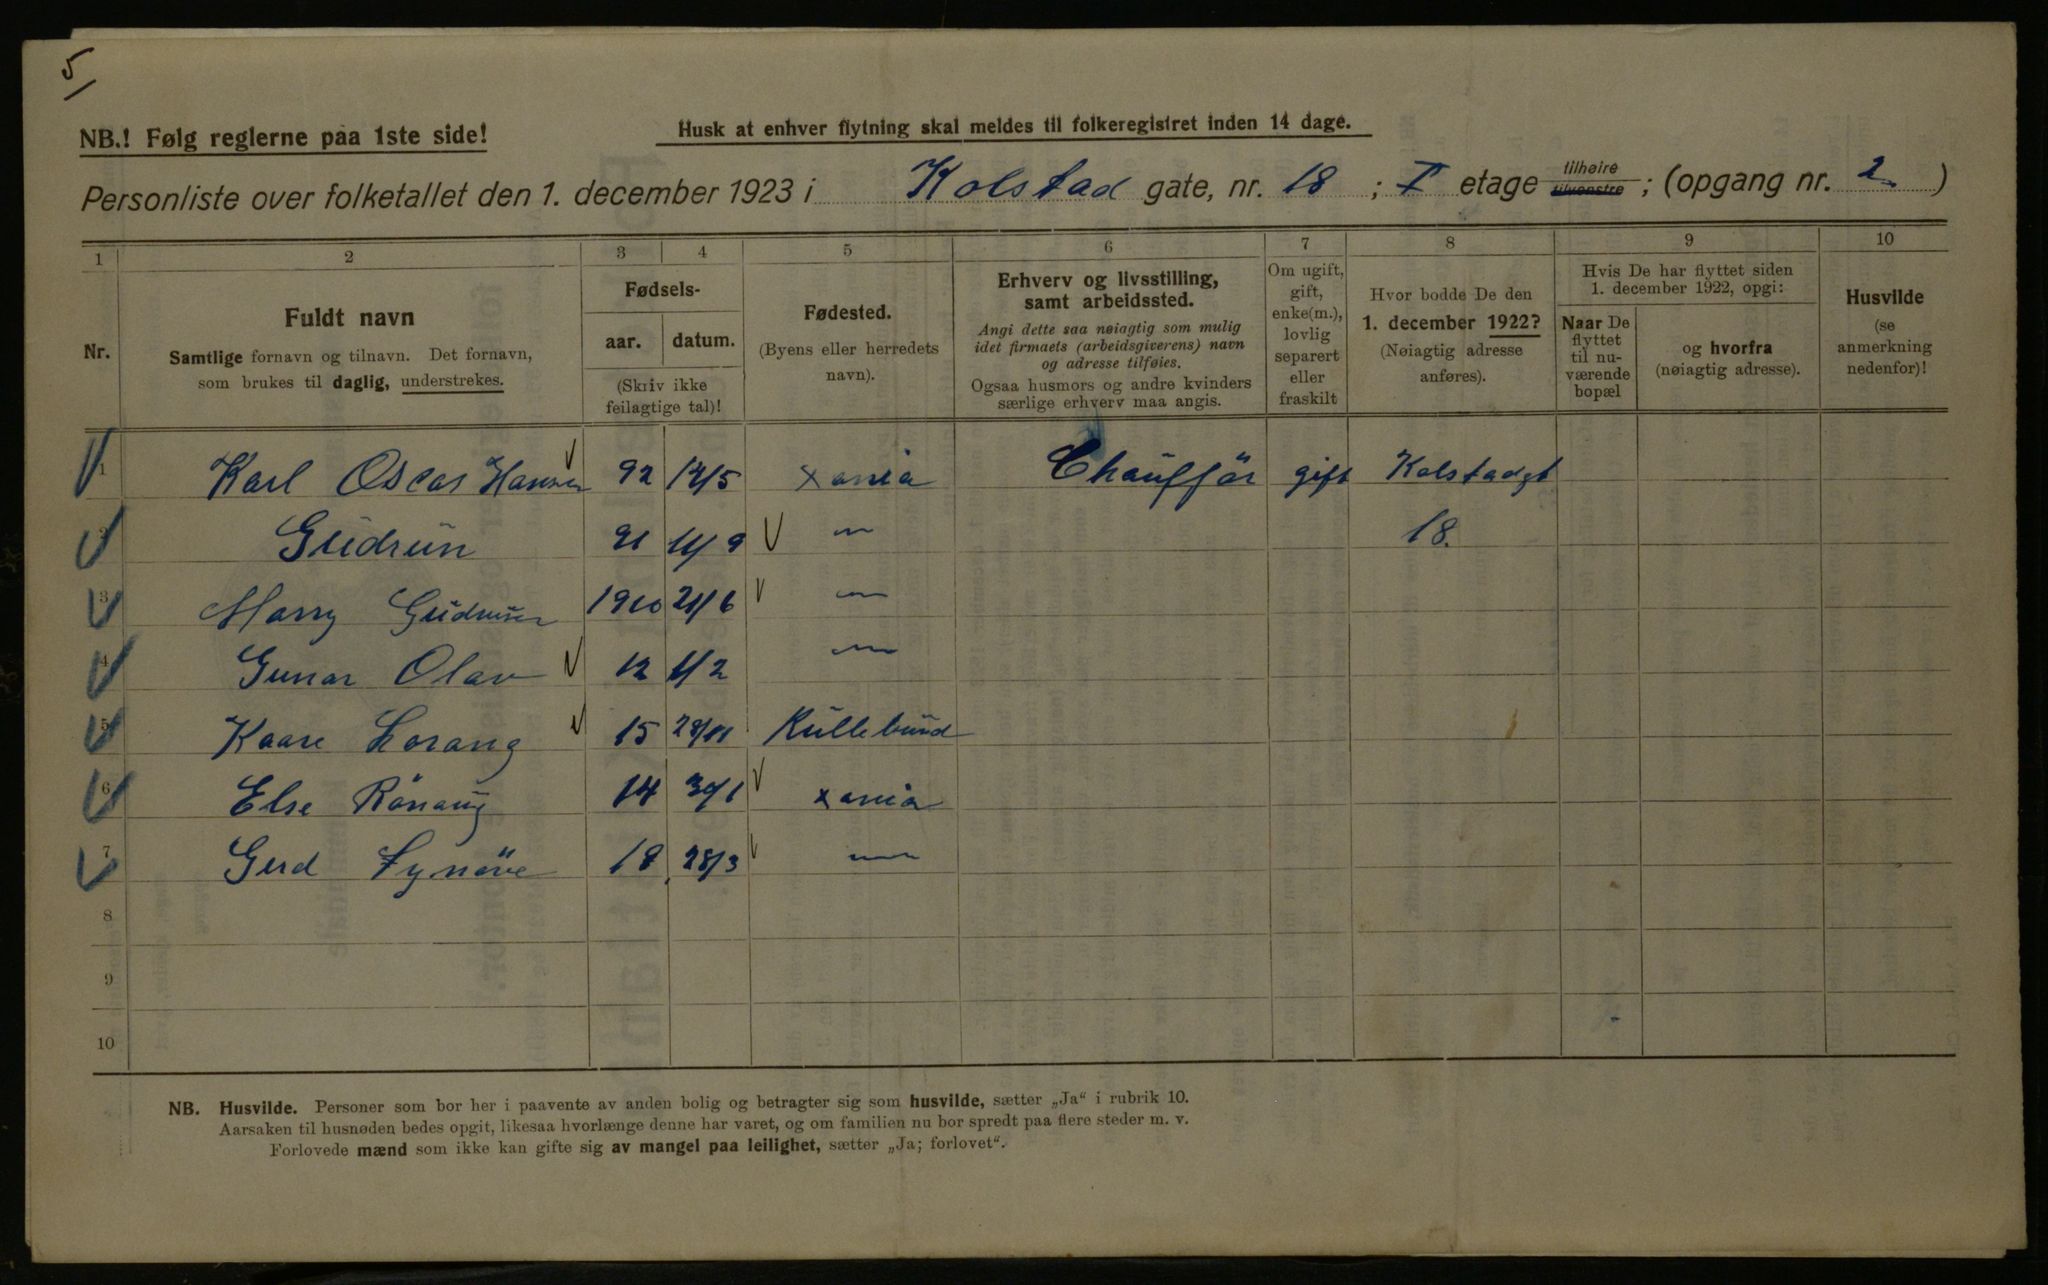 5
NB.! Følg reglerne paa 1ste side!
Husk at enhver flytning skal meldes til folkeregistret inden 14 dage.
Personliste over folketallet den 1. december 1923 i Kolstad gate, nr. 18 ; I etage tilhøire tilvenstre ; (opgang nr. 2 )
1 2 3 4 5 6 7 8 9 10
Nr.
Fuldt navn
Samtlige fornavn og tilnavn. Det fornavn,
som brukes til daglig, understrekes.
Fødsels-
aar. datum.
(Skriv ikke
feilagtige tal)!
Fødested.
(Byens eller herredets
navn).
Erhverv og livsstilling,
samt arbeidssted.
Angi dette saa nøiagtig som mulig
idet firmaets (arbeidsgiverens) navn
og adresse tilføies.
Ogsaa husmors og andre kvinders
særlige erhverv maa angis.
Om ugift,
gift,
enke(m.),
lovlig
separert
eller
fraskilt
Hvor bodde De den
1. december 1922?
(Nøiagtig adresse
anføres).
Hvis De har flyttet siden
1. december 1922, opgi:
Naar De
flyttet
til nu-
værende
bopæl
og hvorfra
(nøiagtig adresse).
Husvilde
(se
anmerkning
nedenfor)!
1 Karl Oscar Hansen 92 12/5 Xania Chaufför gift Kolstadgt
2 Gudrun 91 11/9 — 18.
3 Harry 1910 21/6 —
4 Gunar Olav 12 1/2 —
5 Kaare Lorang 15 28/11 Kullebund
6 Else Rönaug 14 30/1 Xania
7 Gerd Synöve 18 28/3 —
8
9
10
NB. Husvilde. Personer som bor her i paavente av anden bolig og betragter sig som husvilde, sætter „Ja“ i rubrik 10.
Aarsaken til husnøden bedes opgit, likesaa hvorlænge denne har varet, og om familien nu bor spredt paa flere steder m. v.
Forlovede mænd som ikke kan gifte sig av mangel paa leilighet, sætter „Ja; forlovet“.